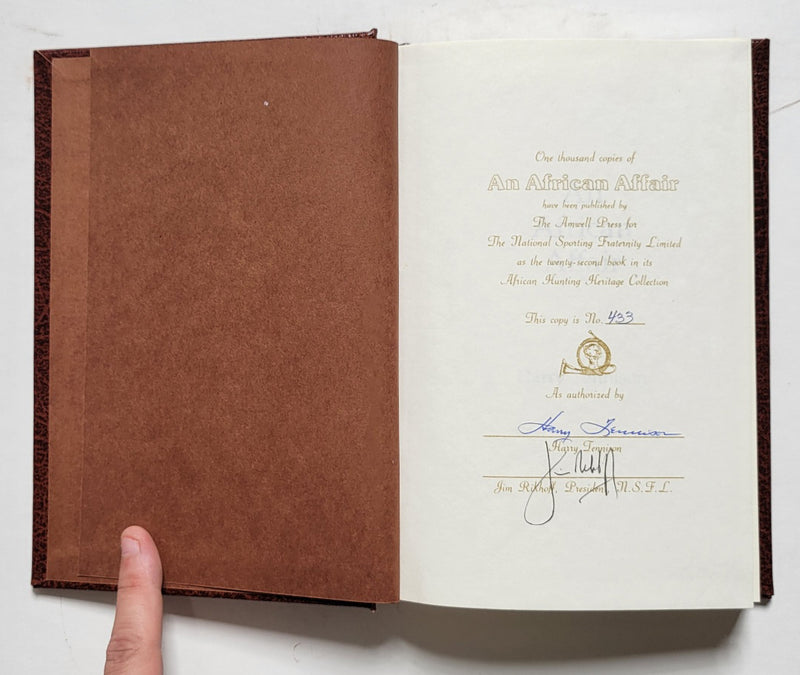 One thousand copies of
An African Affair
have been published by
The Amwell Press for
The National Sporting Fraternity Limited
as the twenty-second book in its
African Hunting Heritage Collection
This copy is No. 433
As authorized by
Harry Tennison
Harry Tennison
Jim Rikhoff
Jim Rikhoff, President, N.S.F.L.